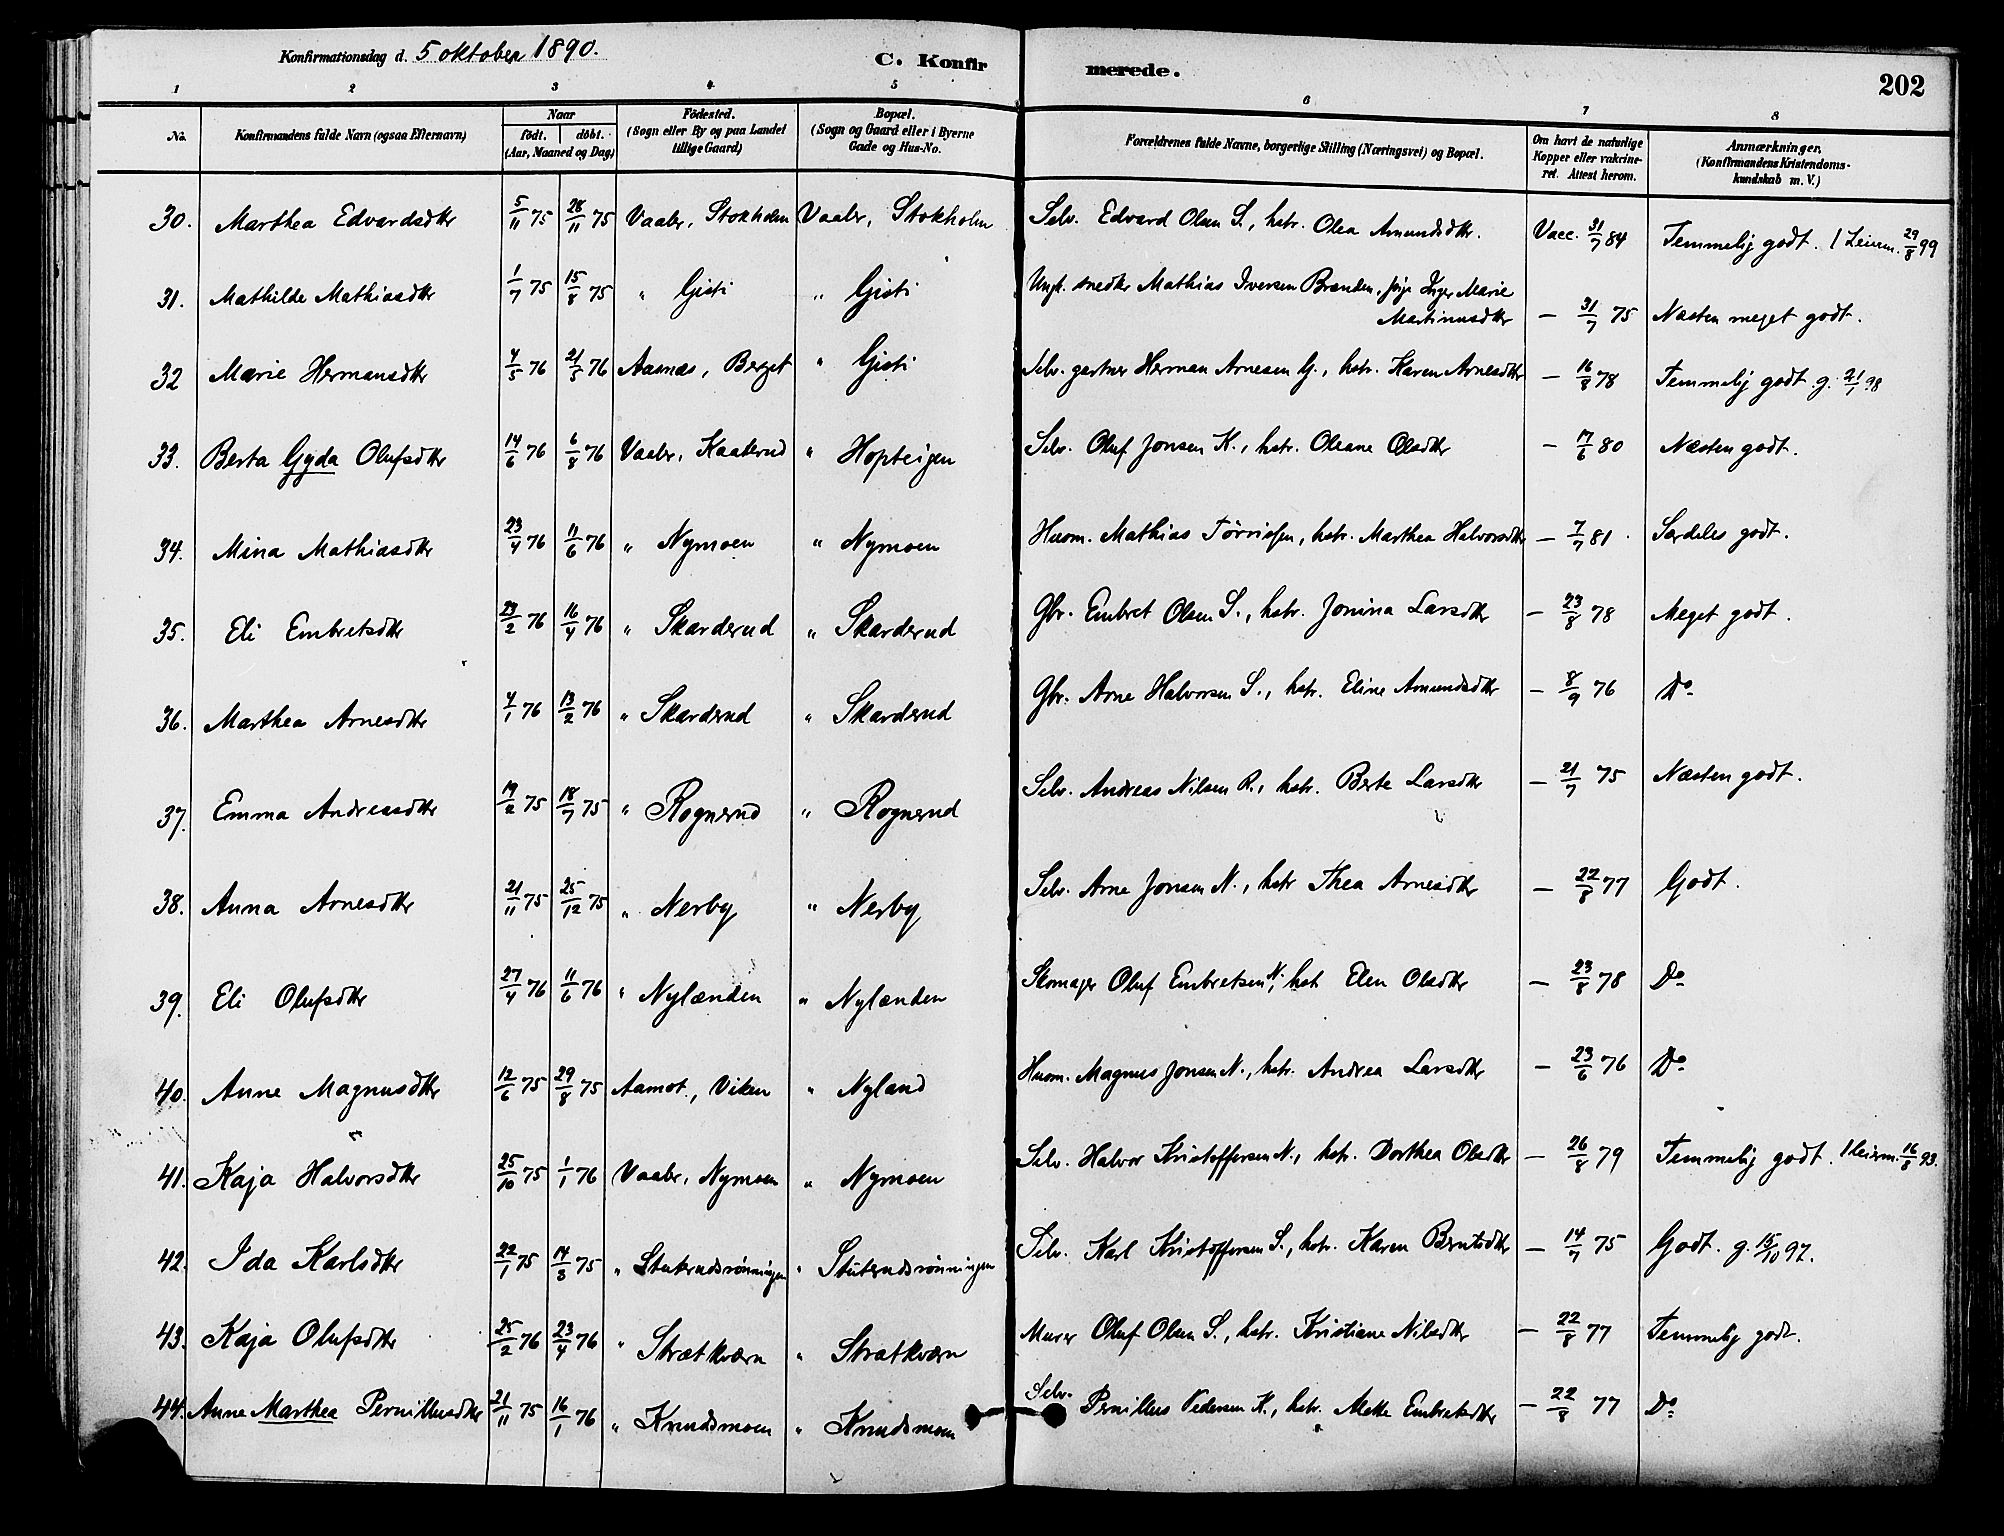 Konfirmationsdag d. 5 oktober 1890. C. Konfirmerede. 202
1 2 3 4 5 6 7 8
No. Konfirmandens fulde Navn (ogsaa Efternavn) Naar födt. döbt. (Aar, Maaned og Dag) Födested. (Sogn eller By og paa Landet tillige Gaard) Bopæl. (Sogn og Gaard eller i Byerne Gade og Hus-No. Forældrenes fulde Navne, borgerlige Stilling (Næringsvei) og Bopæl. Om havt de naturlige Kopper eller vakcineret. Attest herom. Anmærkninger. (Konfirmandens Kristendomskundskab m. V.)
30. Marthea Edvardsdtr 5/11 75 28/11 75 Vaaler, Stokholm Vaaler, Stokholm Selv. Edvard Olsen S., hstr. Olea Amundsdtr. Vacc. 31/7 84 Temmelig godt. 1 Leierm. 29/8 99
31. Mathilde Mathiasdtr 1/7 75 15/8 75 " Gisti " Gisti Ungk. snedker Mathias Iversen Branden, pige Inger Marie Martinusdtr — 31/7 75 Næsten meget godt.
32 Marie Hermansdtr 4/5 76 21/5 76 Aasnæs, Berget " Gisti Selv. gartner Herman Arnesen G., hstr. Karen Arnesdtr — 16/8 78 Temmelig godt. g. 21/1 98
33. Berta Gyda Olufsdtr 14/6 76 6/8 76 Vaaler, Kaaterud " Hopteigen Selv. Oluf Jonsen K., hstr. Oleane Olsdtr — 17/6 80 Næsten godt.
34. Mina Mathiasdtr 23/4 76 11/6 76 " Nymoen " Nymoen Husm. Mathias Törrissen, hstr. Marthea Halvorsdtr — 7/7 81. Særdeles godt.
35. Eli Embretsdtr 23/2 76 16/4 76 " Skarderud " Skarderud Gbr. Embret Olsen S., hstr. Jonina Larsdtr — 23/8 78 Meget godt.
36. Marthea Arnesdtr 4/1 76 13/2 76 " Skarderud " Skarderud Gbr. Arne Halvorsen S., hstr. Eline Amundsdtr — 8/9 76 Do
37. Emma Andreasdtr 19/2 75 18/7 75 " Rognerud " Rognerud Selv. Andreas Nilsen R., hstr. Berte Larsdtr — 21/7 75 Næsten godt.
38. Anna Arnesdtr 21/11 75 25/12 75 " Nerby " Nerby Selv. Arne Jonsen N., hstr Thea Arnesdtr — 22/8 77 Godt.
39. Eli Olufsdtr 27/4 76 11/6 76 " Nylænden " Nylænden Skomager Oluf Embretsen N., hst Elen Olsdtr — 23/8 78 Do
40. Anne Magnusdtr 12/6 75 29/8 75 Aamot, Viken " Nyland Husm. Magnus Jonsen N., hstr. Andrea Larsdtr — 23/6 76 Do
41. Kaja Halvorsdtr 25/10 75 1/1 76 Vaaler, Nymoen " Nymoen Selv. Halvor Kristoffersen N., hstr. Dorthea Olsdtr — 26/8 79 Temmelig godt. 1 leierm. 16/8 93.
42. Ida Karlsdtr 22/1 75 14/3 75 " Stuterudsrönningen " Stuterudsrönningen Selv. Karl Kristoffersen S., hstr. Karen Berntsdtr — 14/7 75 Godt. g. 15/10 97.
43. Kaja Olufsdtr 25/2 76 23/4 76 " Strætkværn " Strætkværn Murer Oluf Olsen S., hstr. Kristiane Nilsdtr — 22/8 77 Temmelig godt.
44. Anne Marthea Pernillusdtr 21/11 75 16/1 76 " Knudsmoen " Knudsmoen Selv. Pernillus Pedersen K., hstr. Mette Embretsdtr — 22/8 77 Do